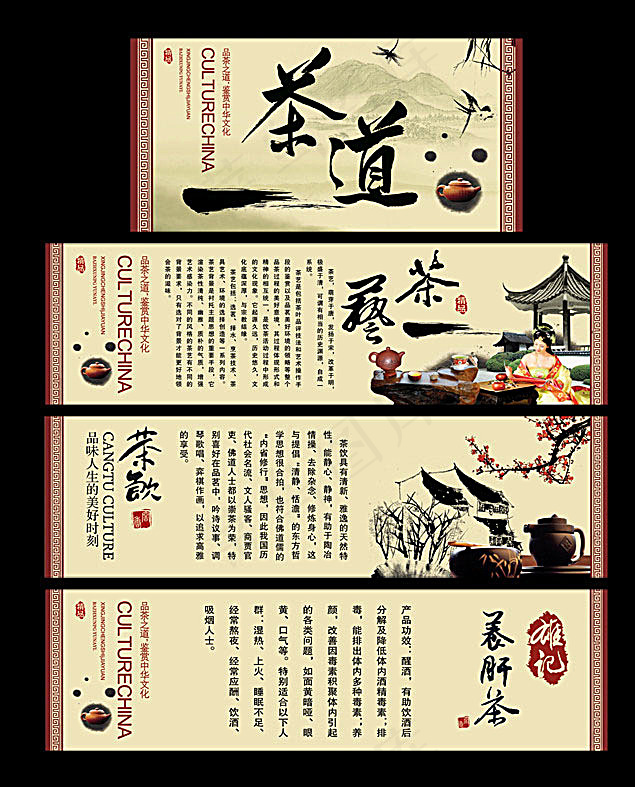 茶道
品茶之道；鉴赏中华文化
CULTURECHINA
XINGJINGCHENGSHIJIAYUAN
茶藝
茶艺，萌芽于唐，发扬于宋，改革于明，
极盛于清，可谓有相当的历史渊源，自成
系统。
茶艺是包括茶叶品评技法和艺术操作手
段的鉴赏以及品茗美好环境的领略等整个
品茶过程的美好意境，其过程体现形式和
精神的相互统一，是饮茶活动过程中形成
的文化现象。它起源久远，历史悠久，文
化底蕴深厚，与宗教结缘。
茶艺包括：选茗、择水、烹茶技术、茶
具艺术、环境的选择创造等一系列内容。
茶艺背景是衬托主题思想的重要手段，它
渲染茶性清纯、幽雅、质朴的气质，增强
艺术感染力。不同的风格的茶艺有不同的
背景要求，只有选对了背景才能更好地领
会茶的滋味。
品茶之道；鉴赏中华文化
CULTURECHINA
XINGJINGCHENGSHIJIAYUAN
茶饮具有清新、雅逸的天然特
性，能静心、静神，有助于陶冶
情操、去除杂念、修炼身心，这
与提倡“清静、恬澹”的东方哲
学思想很合拍，也符合佛道儒的
“内省修行”思想，因此我国历
代社会名流、文人骚客、商贾官
吏、佛道人士都以崇茶为荣，特
别喜好在品茗中，吟诗议事、调
琴歌唱、弈棋作画，以追求高雅
的享受。
茶飲
CANGTU CULTURE
品味人生的美好时刻
雄记
养肝茶
产品功效：醒酒，有助饮酒后
分解及降低体内酒精毒素；排
毒，能排出体内多种毒素；养
颜，改善因毒素积聚体内引起
的各类问题，如面黄暗哑、眼
黄、口气等。特别适合以下人
群：湿热、上火、睡眠不足、
经常熬夜、经常应酬、饮酒、
吸烟人士。
品茶之道；鉴赏中华文化
CULTURECHINA
XINGJINGCHENGSHIJIAYUAN